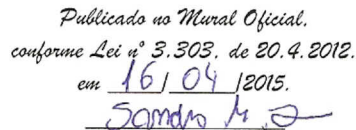 Publicado no Mural Oficial,
conforme Lei nº 3.303, de 20.4.2012.
em 16 / 04 /2015.
Sandro M.